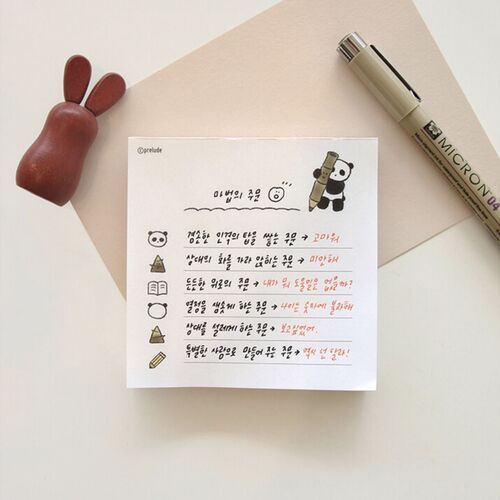 ⓒprelude
마법의 주문
겸손한 인격의 탑을 쌓는 주문 → 고마워
상대의 화를 가라 앉히는 주문 → 미안해
든든한 위로의 주문 → 내가 뭐 도울일은 없을까?
열정을 샘솟게 하는 주문 → 나이는 숫자에 불과해
상대를 설레게 하는 주문 → 보고싶었어.
특별한 사람으로 만들어 주는 주문 → 역시 넌 달라!
MICRON 04